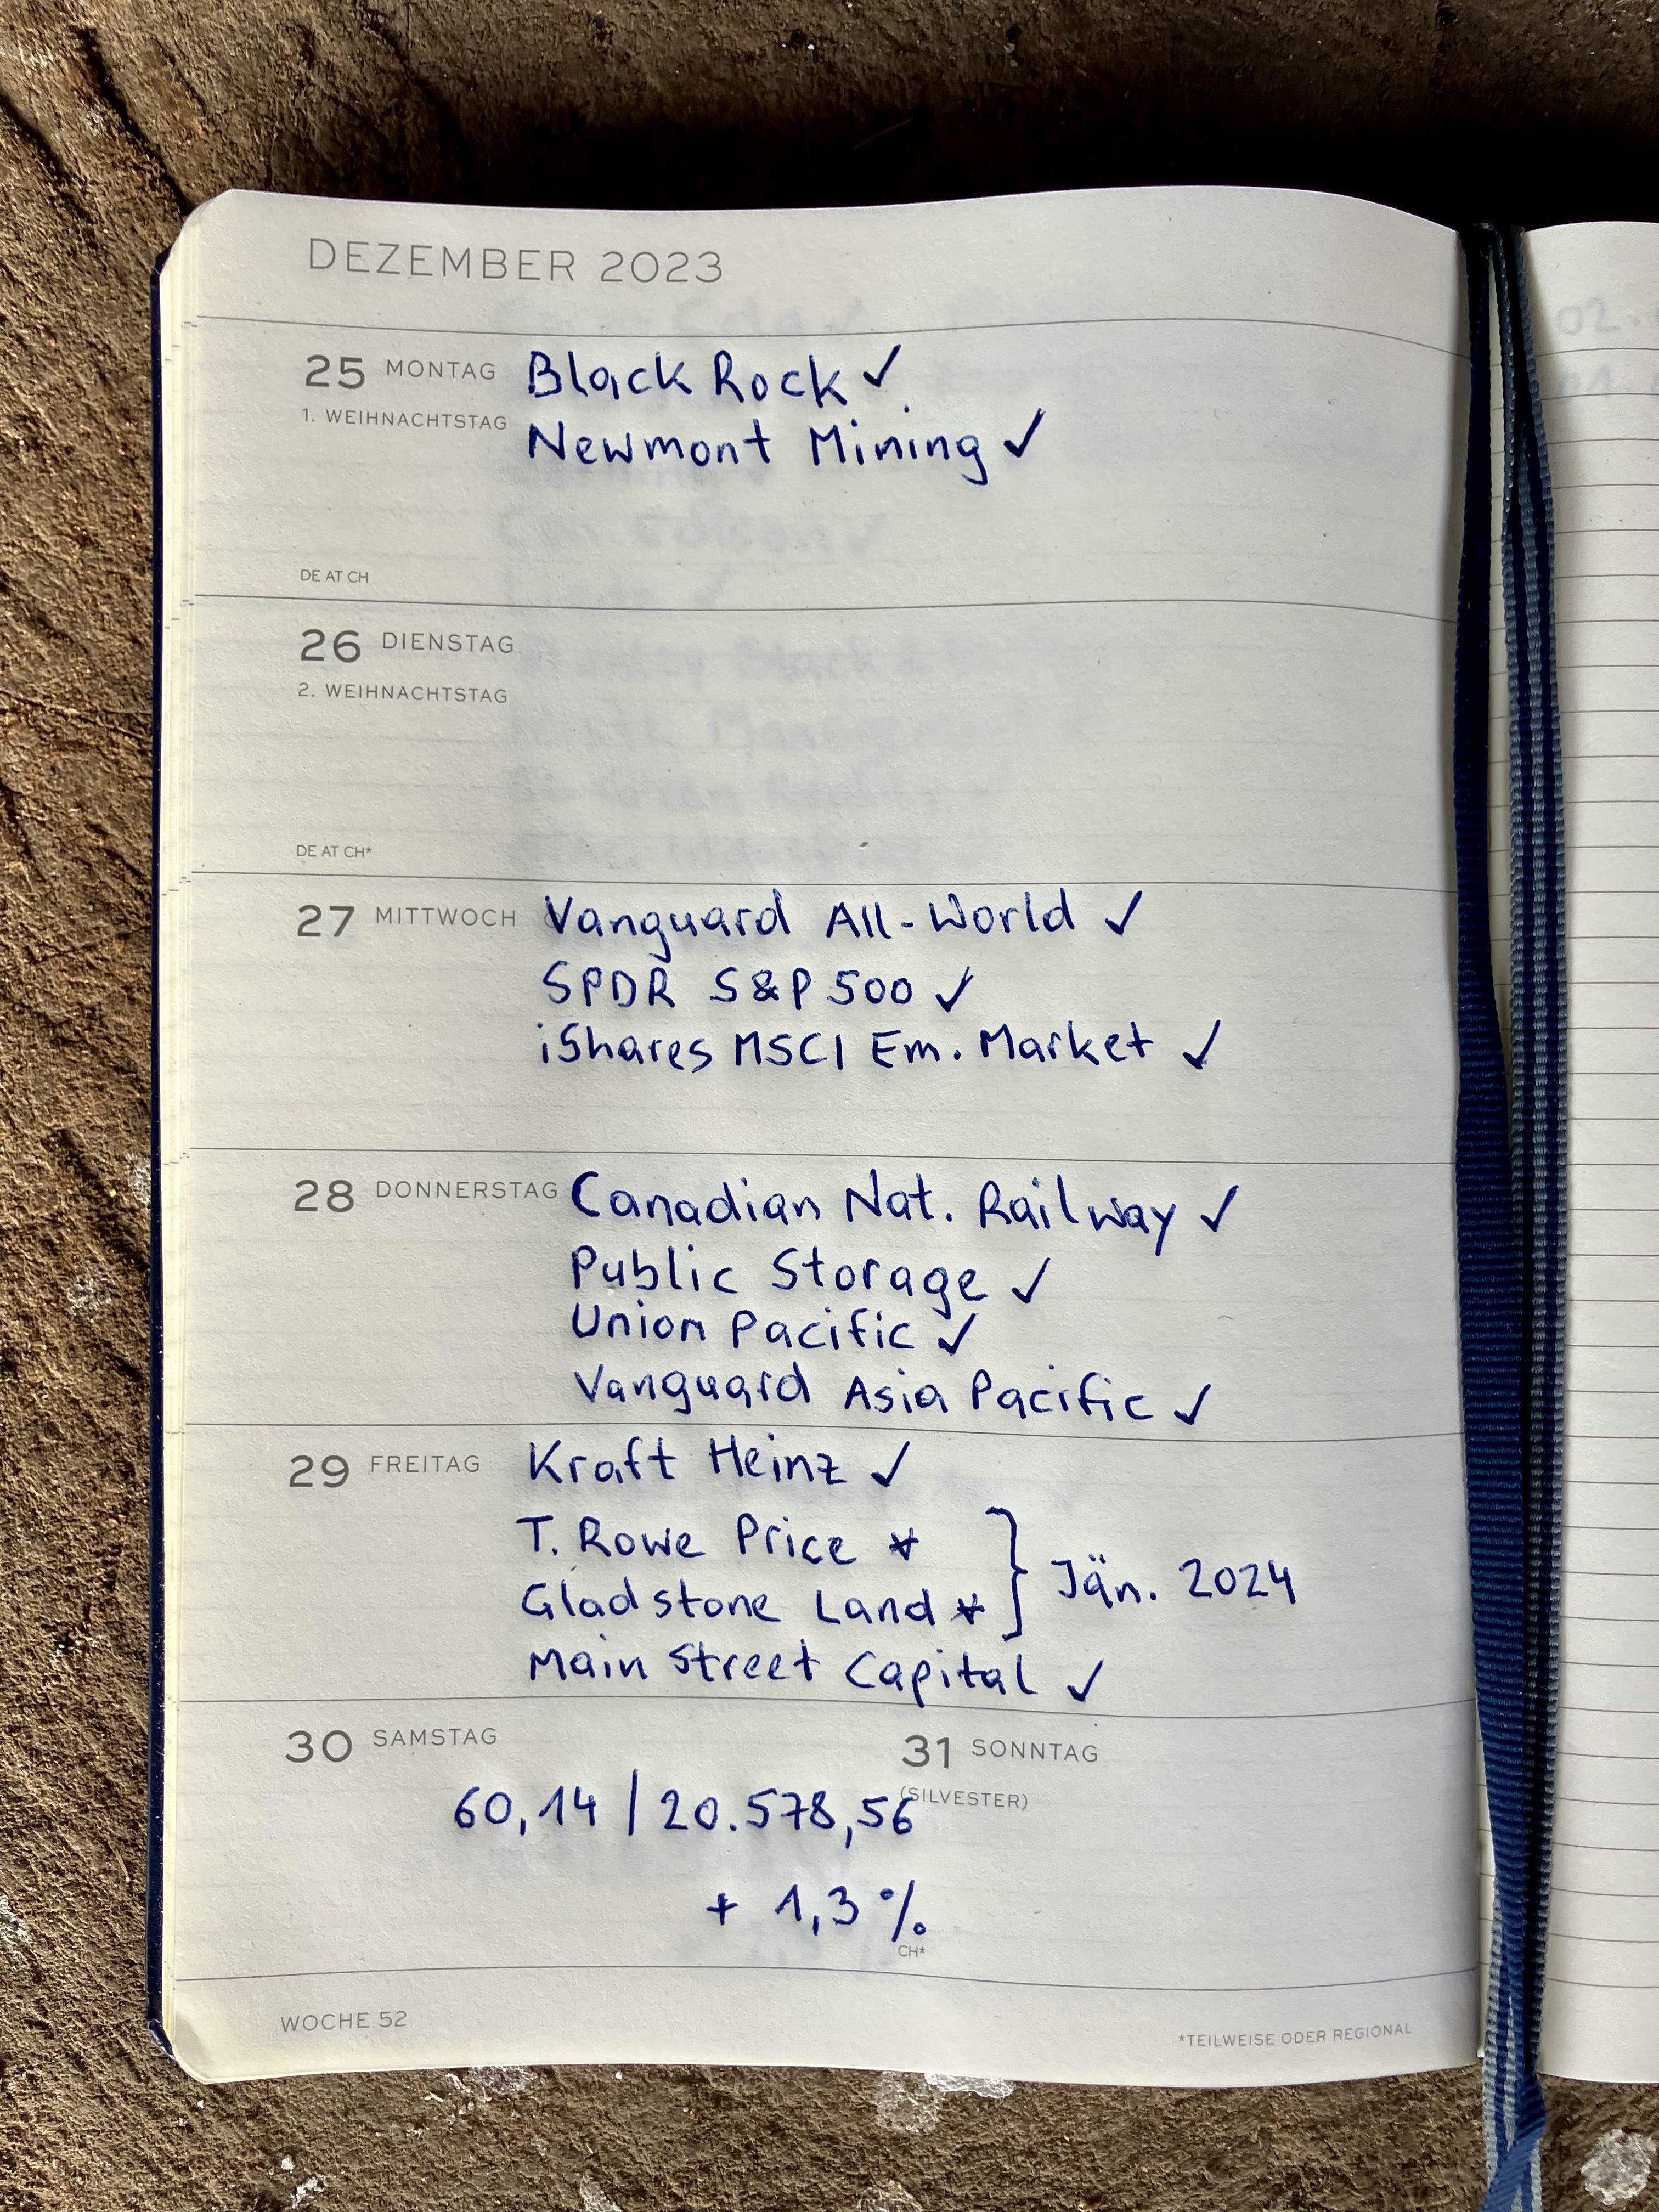 DEZEMBER 2023
25 MONTAG Black Rock ✓
1. WEIHNACHTSTAG Newmont Mining ✓
DE AT CH
26 DIENSTAG
2. WEIHNACHTSTAG
DE AT CH*
27 MITTWOCH Vanguard All-World ✓
SPDR S&P 500 ✓
iShares MSCI Em. Market ✓
28 DONNERSTAG Canadian Nat. Railway ✓
Public Storage ✓
Union Pacific ✓
Vanguard Asia Pacific ✓
29 FREITAG Kraft Heinz ✓
T. Rowe Price *
Gladstone Land * } Jän. 2024
Main Street Capital ✓
30 SAMSTAG
31 SONNTAG
(SILVESTER)
60,14 | 20.578,56
+ 1,3 %
CH*
WOCHE 52
*TEILWEISE ODER REGIONAL